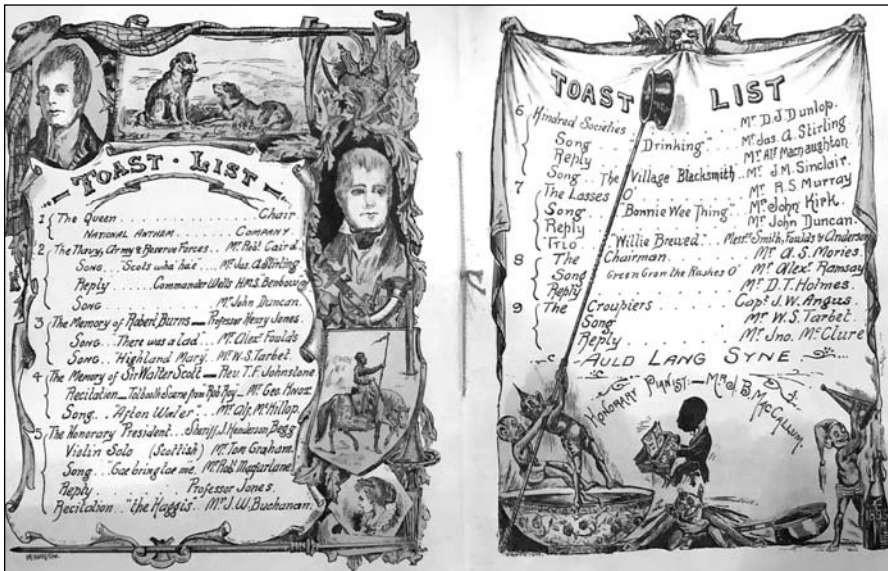 TOAST · LIST
1 { The Queen ........ Chair
NATIONAL ANTHEM ...... COMPANY
2 { The Navy, Army & Reserve Forces .. Mr. Robt. Caird.
SONG ... "Scots wha' hae" ... Mr. Jas. A. Stirling
Reply ...... Commander Wells H.M.S. Benbow
SONG ...... Mr. John Duncan.
3 { The Memory of Robert Burns — Professor Henry Jones.
SONG .. "There was a lad" .. Mr. Alexr. Foulds
SONG .. "Highland Mary" .. Mr. W. S. Tarbet.
4 { The Memory of Sir Walter Scott — Rev. T. F. Johnstone
Recitation — Tolbooth Scene from "Rob Roy" — Mr. Geo. Knox.
Song .. "Afton Water" .. Mr. Alf. McHillop.
5 { The Honorary President .. Sheriff J. Henderson Begg
Violin Solo (Scottish) Mr. Tom Graham.
Song .. "Gae bring tae me". Mr. Robt. Macfarlane.
Reply ........ Professor Jones.
Recitation .. "the Haggis" .. Mr. J. W. Buchanan.
TOAST LIST
6 { Kindred Societies .. Mr. D. J. Dunlop.
Song "Drinking" .. Mr. Jas. A. Stirling
Reply Mr. Alf Macnaughton.
Song .. The Village Blacksmith .. Mr. J. M. Sinclair.
7 { The Lasses O' Mr. R. S. Murray
Song "Bonnie Wee Thing" Mr. John Kirk.
Reply Mr. John Duncan.
Trio "Willie Brewed" Messrs. Smith, Foulds & Anderson
8 { The Chairman. Mr. A. S. Mories.
Song Green Grow the Rashes O' Mr. Alexr. Ramsay
Reply Mr. D. T. Holmes.
9 { The Croupiers Capt. J. W. Angus.
Song Mr. W. S. Tarbet.
Reply Mr. Jno. McClure
AULD LANG SYNE
HONORARY PIANIST:— Mr. J. B. McCALLUM.